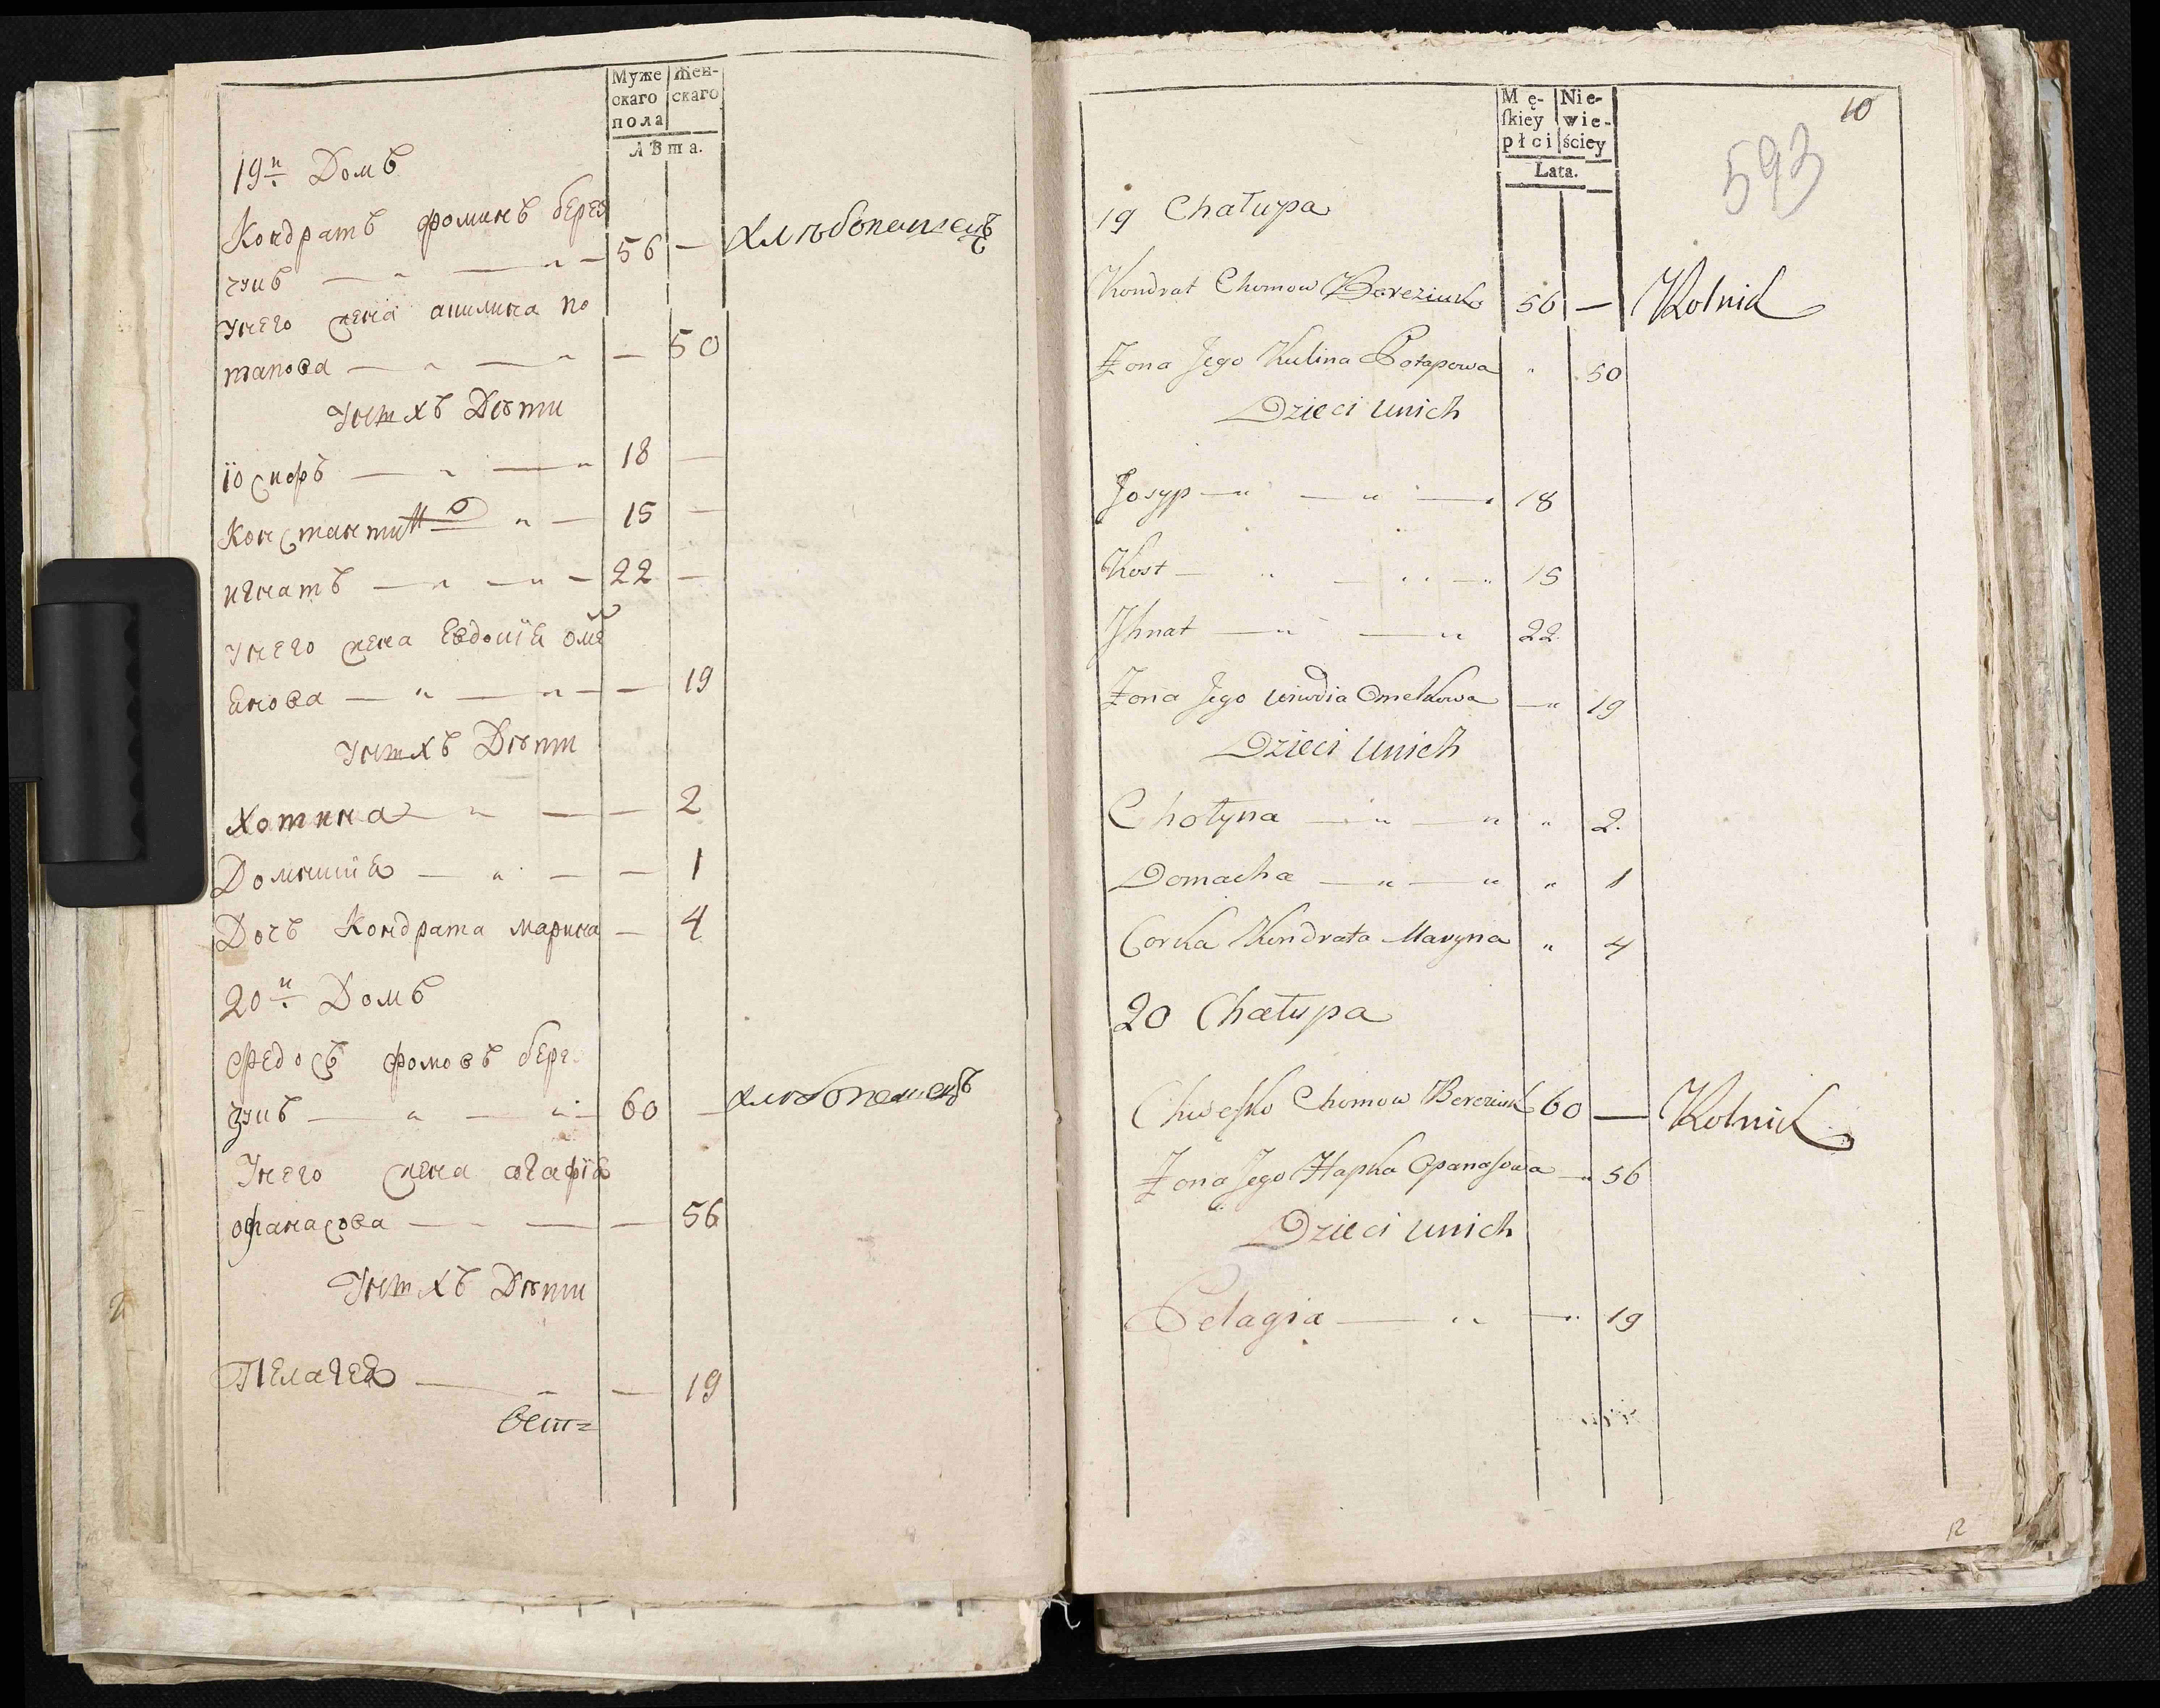 Муже Жен-
скаго скаго
пола
Лѣта.
19й Домъ
Кондратъ фоминъ бере
зчив — " — " — 56 — хлѣбопашецъ
Унего жена акилина по
тапова — " — " — 50
Унихъ Дѣти
іосифъ — " — " 18 —
Константинъ " — 15 —
игнатъ — " — " — 22 —
Унего жена Евдокіѧ омел
ѧнова — " — " — — 19
Унихъ Дѣти
хотина — " — — 2
Домникіѧ — " — — 1
Дочъ Кондрата марина — 4
20й Домъ
Федосъ фомовъ бере
зчив — " — " — 60 — хлѣбопашецъ
Унего жена агафіѧ
офанасова — " — — 56
Унихъ Дѣти
Пелагеѧ — " — 19
вет=
10
593
Mę- Nie-
ſkiey wie-
płci ściey
Lata.
19 Chałupa
Kondrat Chomow Bereziuk 56 — Rolnik
Żona Jego Kulina Potapowa " 50
Dzieci unich
Josyp — " — " — 18
Kost — " — " — " 15
Jhnat — " — " 22
Żona Jego Wiwdia Omelkowa — " 19
Dzieci unich
Chotyna — " — " " 2.
Domacha — " — " " 1
Corka Kondrata Maryna " 4
20 Chałupa
Chwesko Chomow Bereziuk 60 — Rolnik
Żona Jego Hapka Opanaſowa — " 56
Dzieci unich
Pelagia — " — " 19
12